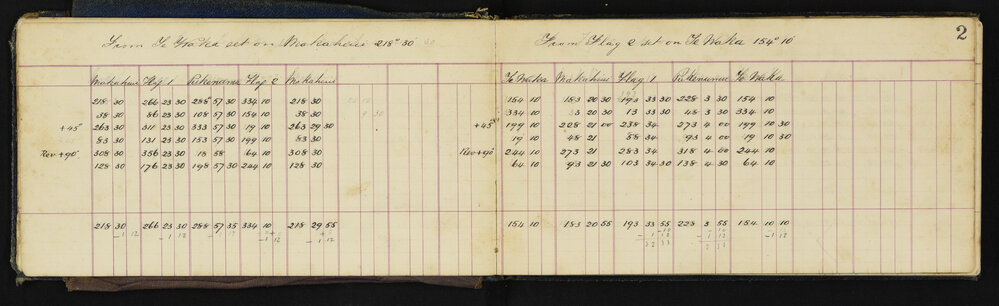 2
From Te Waka set on Makahuri 218° 30'
Makahuri Flag 1 Pukenamu Flag 2 Makahuri
218 30 266 23 30 288 57 30 334 10 218 30
38 30 86 23 30 108 57 30 154 10 38 30
+45° 263 30 311 23 30 333 57 30 19 10 263 29 30
83 30 131 23 30 153 57 30 199 10 83 30
Rev+90° 308 30 356 23 30 18 58 64 10 308 30
128 30 176 23 30 198 57 30 244 10 128 30
218 30 266 23 30 288 57 35 334 10 218 29 55
-1 12 -1 12 -1 12 -1 12
From Flag 2 set on Te Waka 154° 10'
Te Waka Makahuri Flag 1 Pukenamu Te Waka
154 10 183 20 30 193 33 30 228 3 30 154 10
334 10 3 20 30 13 33 30 48 3 30 334 10
+45° 199 10 228 21 00 238 34 273 4 00 199 10 30
19 10 48 21 58 34 93 4 00 19 10 30
Rev+90° 244 10 273 21 283 34 318 4 00 244 10
64 10 93 21 30 103 34 30 138 4 30 64 10
154 10 183 20 55 193 33 55 228 3 55 154 10 10
-1 12 -1 12 -1 12